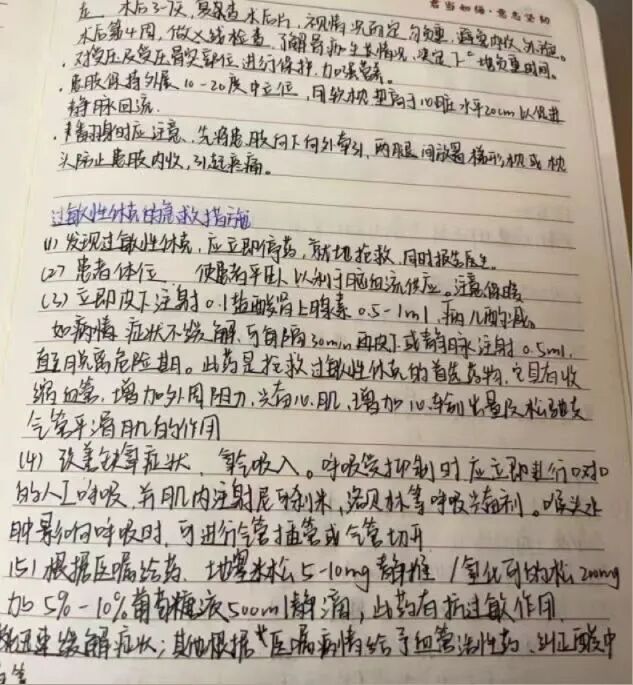 君当如梅·意志坚韧
左 术后3-7天,复查术后片,视情况而定
术后第4周,做X线检查,了解骨痂生长情况,决定下°增负重时间。
·对受压及受压骨突部位,进行保护,加强营养。
·患肢保持外展10-20度中立位,用软枕垫高于心脏水平20cm以促进
静脉回流.
·翻身时应注意,先将患肢向下向外牵引,两腿间放置梯形枕或枕
头防止患肢内收,引起疼痛。
过敏性休克的急救措施
(1) 发现过敏性休克,应立即停药,就地抢救,同时报告医生。
(2) 患者体位 使患者平卧,以利于脑血流供应。注意保暖
(3) 立即皮下注射0.1盐酸肾上腺素0.5-1ml,病儿酌减。
如病情症状不缓解,可每隔30min再皮下或静脉注射0.5ml,
直至脱离危险期。此药是抢救过敏性休克的首选药物,它具有收
缩血管,增加外周阻力,兴奋心肌,增加心输出量及松弛支
气管平滑肌的作用
(4) 改善缺氧症状,氧气吸入。呼吸受抑制时,应立即进行口对口
的人工呼吸,并肌内注射尼可刹米,洛贝林等呼吸兴奋剂。喉头水
肿影响呼吸时,可进行气管插管或气管切开
(5) 根据医嘱给药,地塞米松5-10mg静推/氢化可的松200mg
加5%-10%葡萄糖液500ml静滴,此药有抗过敏作用,
能迅速缓解症状;其他根据医嘱病情给予血管活性药,纠正酸中